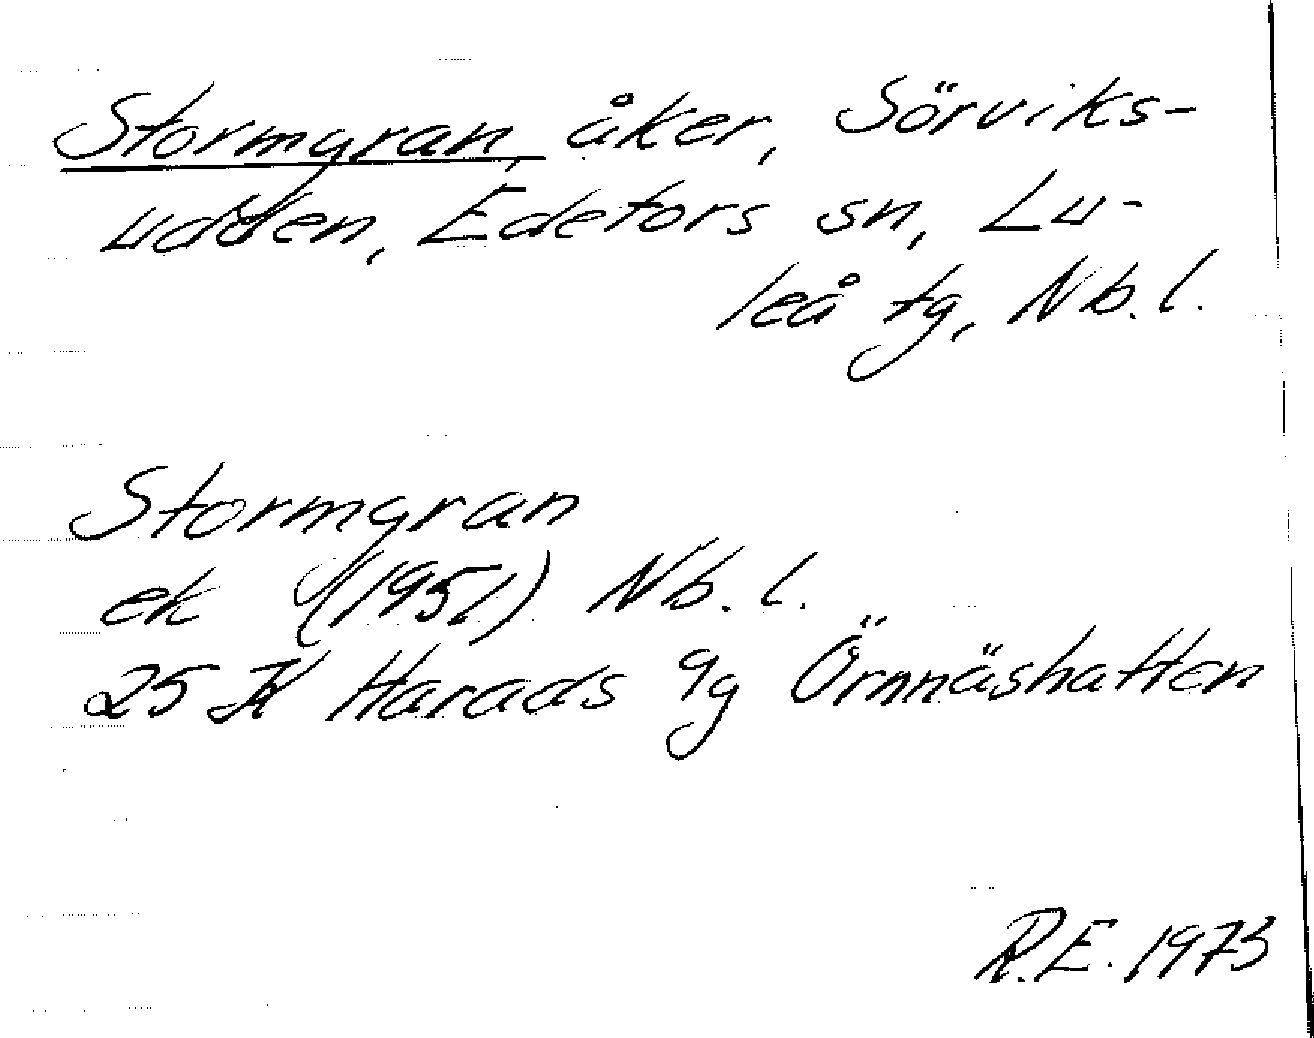 Stormyran, åker, Sörviks-
udden, Edefors sn, Lu-
leå tg, Nb.l.
Stormyran
ek (1951) Nb.l.
25 K Harads 9g Örnnäshatten
R.E. 1973